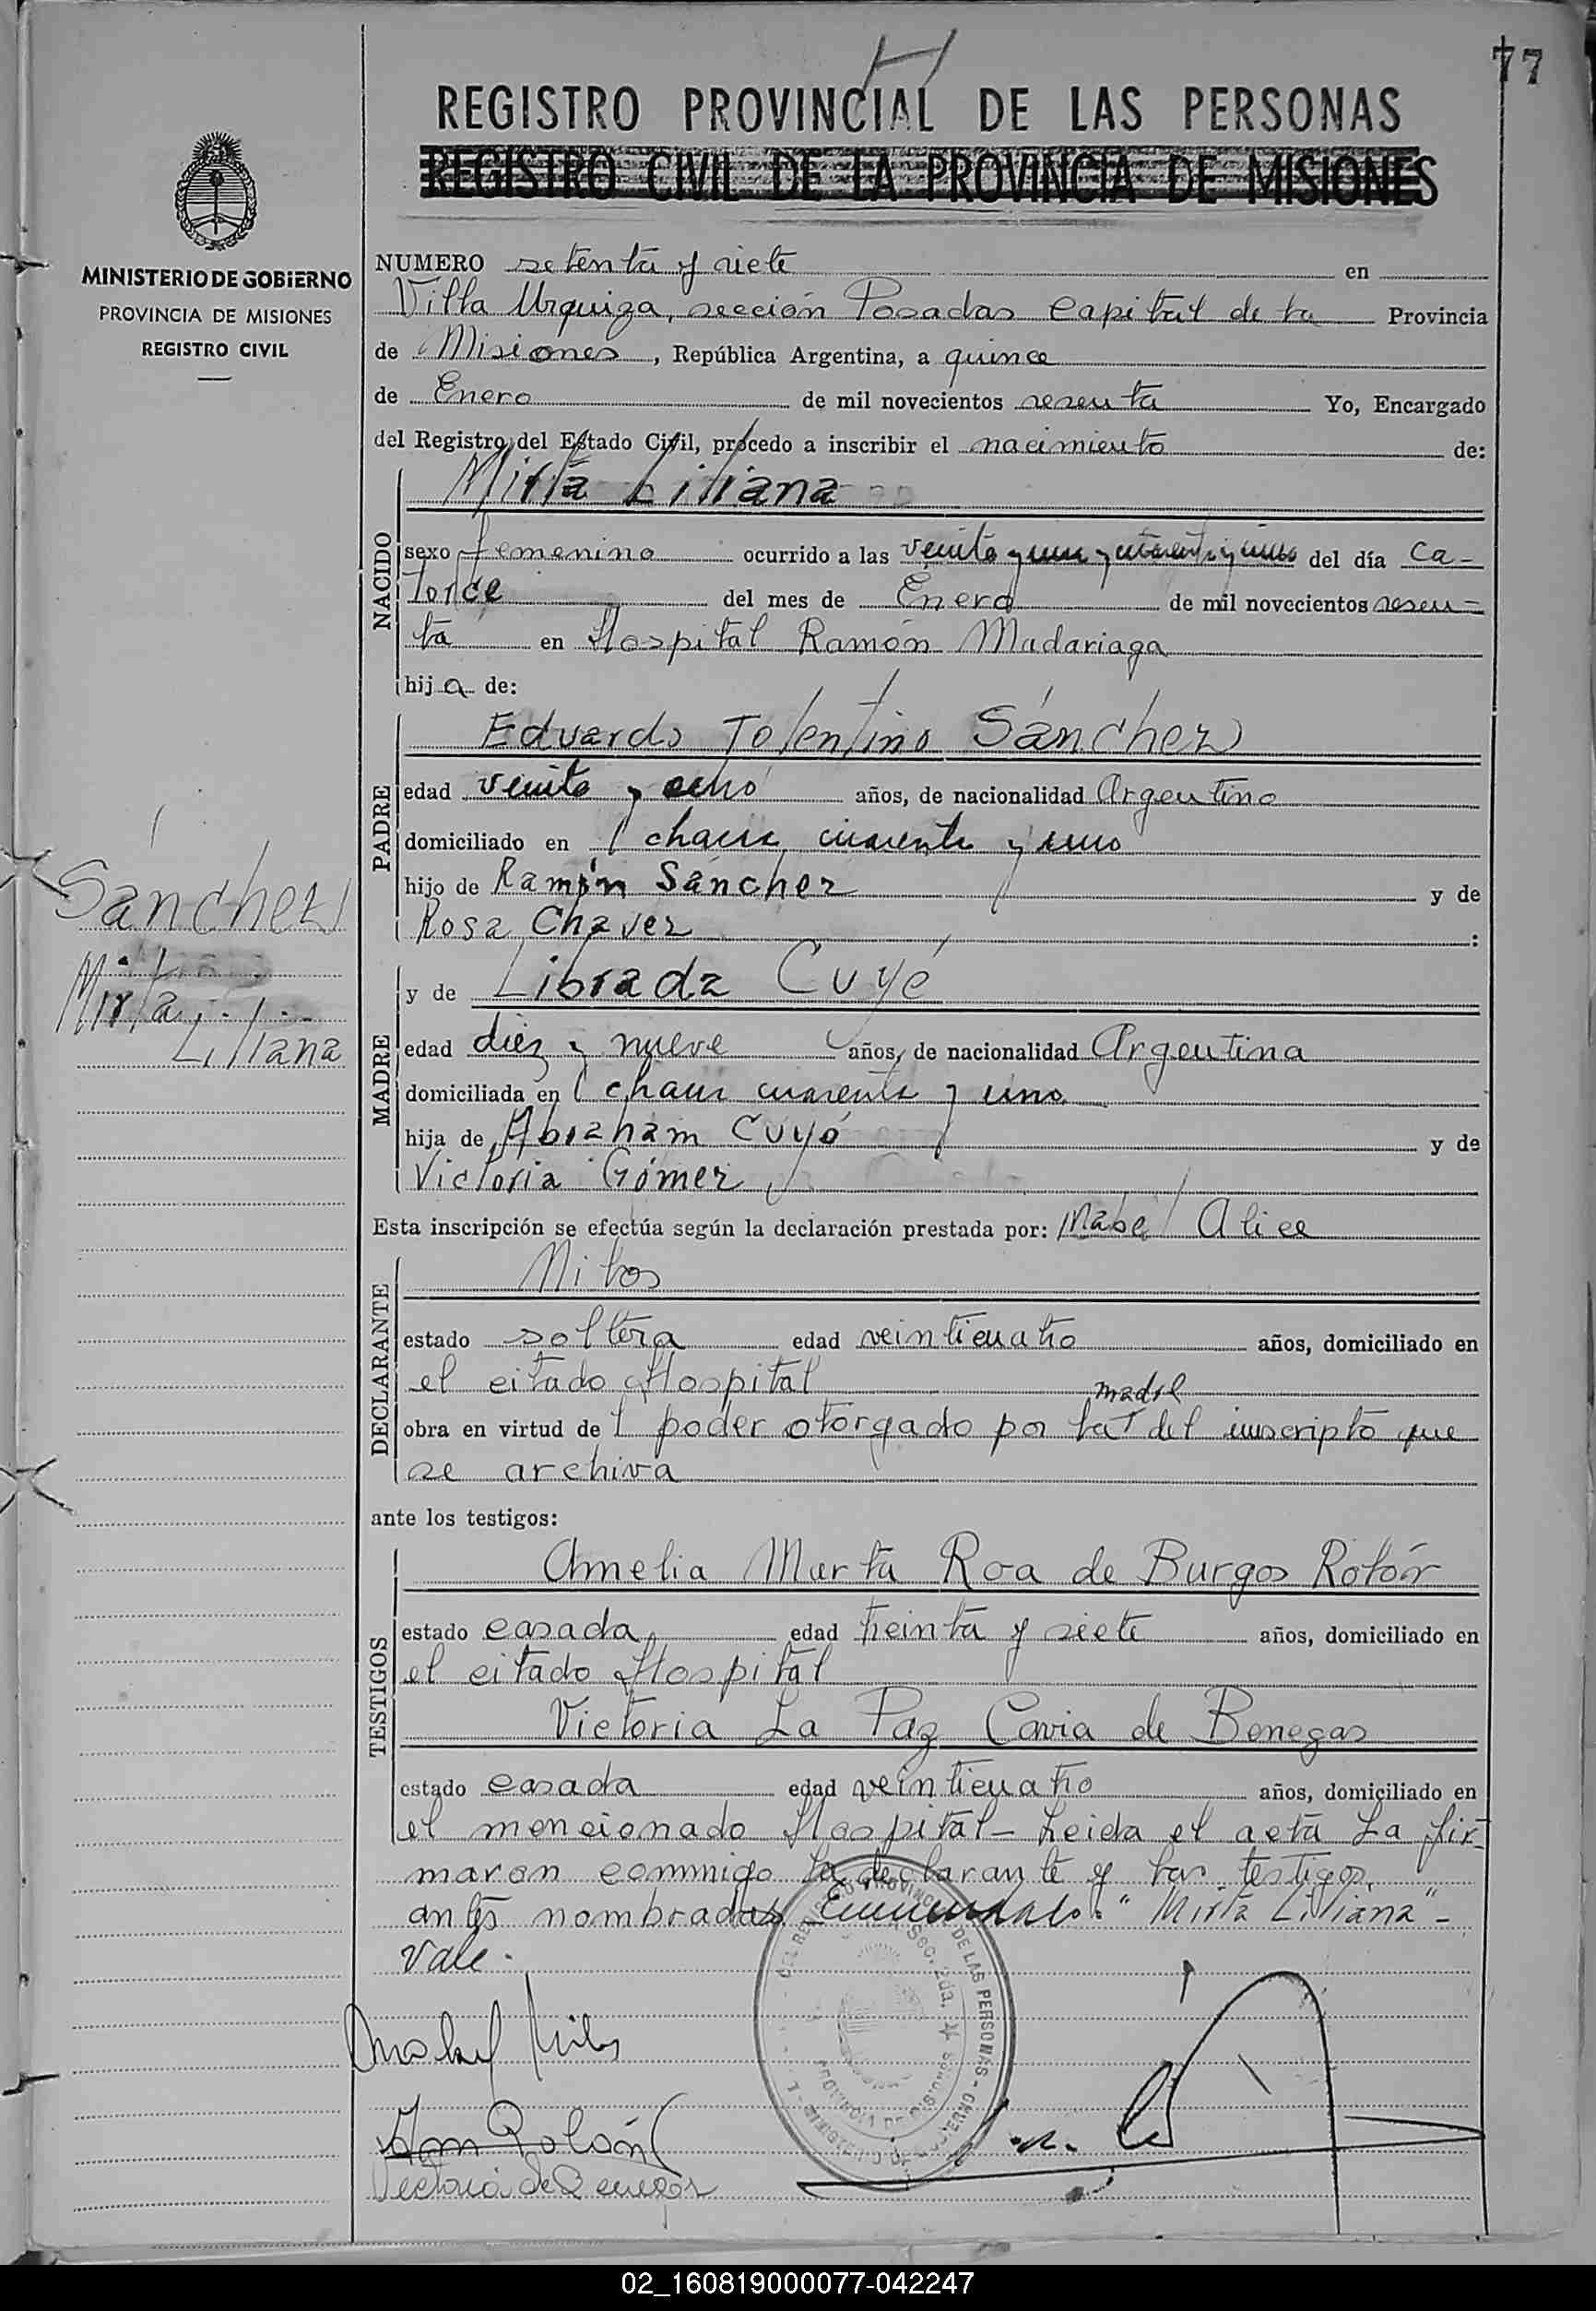 77
REGISTRO PROVINCIAL DE LAS PERSONAS
REGISTRO CIVIL DE LA PROVINCIA DE MISIONES
MINISTERIO DE GOBIERNO
PROVINCIA DE MISIONES
REGISTRO CIVIL
NUMERO setenta y siete en
Villa Urquiza, sección Posadas Capital de la Provincia
de Misiones, República Argentina, a quince
de Enero de mil novecientos sesenta Yo, Encargado
del Registro del Estado Civil, procedo a inscribir el nacimiento de:
Mirta Liliana
NACIDO
sexo femenino ocurrido a las veinte y una y cuarenta y cinco del día Ca-
torce del mes de Enero de mil novecientos sesen-
ta en Hospital Ramón Madariaga
hija de:
PADRE
Eduardo Tolentino Sánchez
edad veinte y ocho años, de nacionalidad Argentino
domiciliado en chacra cuarenta y uno
hijo de Ramón Sánchez y de
Rosa Chavez :
Sánchez
Mirta
Liliana
MADRE
y de Librada Cuyé
edad diez y nueve años, de nacionalidad Argentina
domiciliada en chacra cuarenta y uno
hija de Abraham Cuyó y de
Victoria Gómez
Esta inscripción se efectúa según la declaración prestada por: Mabel Alice
DECLARANTE
Mitos
estado soltera edad veinticuatro años, domiciliado en
el citado Hospital
madre
obra en virtud de poder otorgado por la del inscripto que
se archiva
ante los testigos:
TESTIGOS
Amelia Marta Roa de Burgos Rolón
estado casada edad treinta y siete años, domiciliado en
el citado Hospital
Victoria La Paz Cavia de Benegas
estado casada edad veinticuatro años, domiciliado en
el mencionado Hospital- Leida el acta La fir-
maron conmigo la declarante y las testigos
antes nombradas. Enmendado: "Mirta Liliana"-
Vale.
Victoria de Benegas
02_160819000077-042247